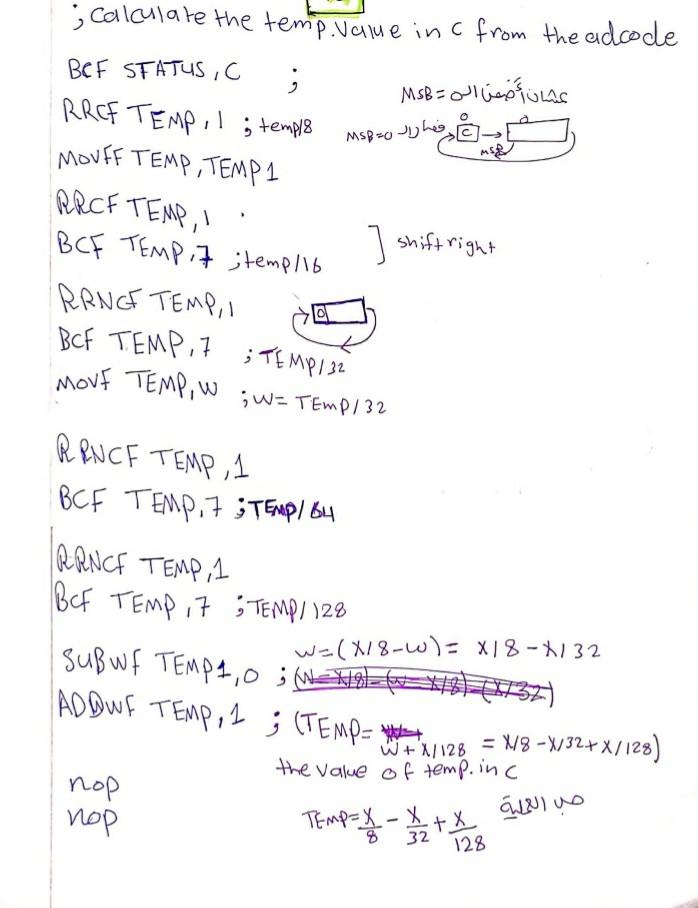 ; Calculate the temp. Value in C from the adcode
BCF STATUS, C ;
عشان أضمن الـ MSB = 0
RRCF TEMP, 1 ; temp/8
MSB=0 الـ
0
C
0
MSB
MOVFF TEMP, TEMP1
RRCF TEMP, 1
BCF TEMP, 7 ; temp/16
] shift right
RRNCF TEMP, 1
0
BCF TEMP, 7 ; TEMP/32
MOVF TEMP, W ; W = TEMP/32
RRNCF TEMP, 1
BCF TEMP, 7 ; TEMP/64
RRNCF TEMP, 1
BCF TEMP, 7 ; TEMP/128
W=(X/8-W) = X/8 - X/32
SUBWF TEMP1, 0 ; (W=X/8) - (W X/8) - (X/32)
ADDWF TEMP, 1 ; (TEMP=
W + X/128 = X/8 - X/32 + X/128)
the value of temp. in C
nop
nop
TEMP = X/8 - X/32 + X/128